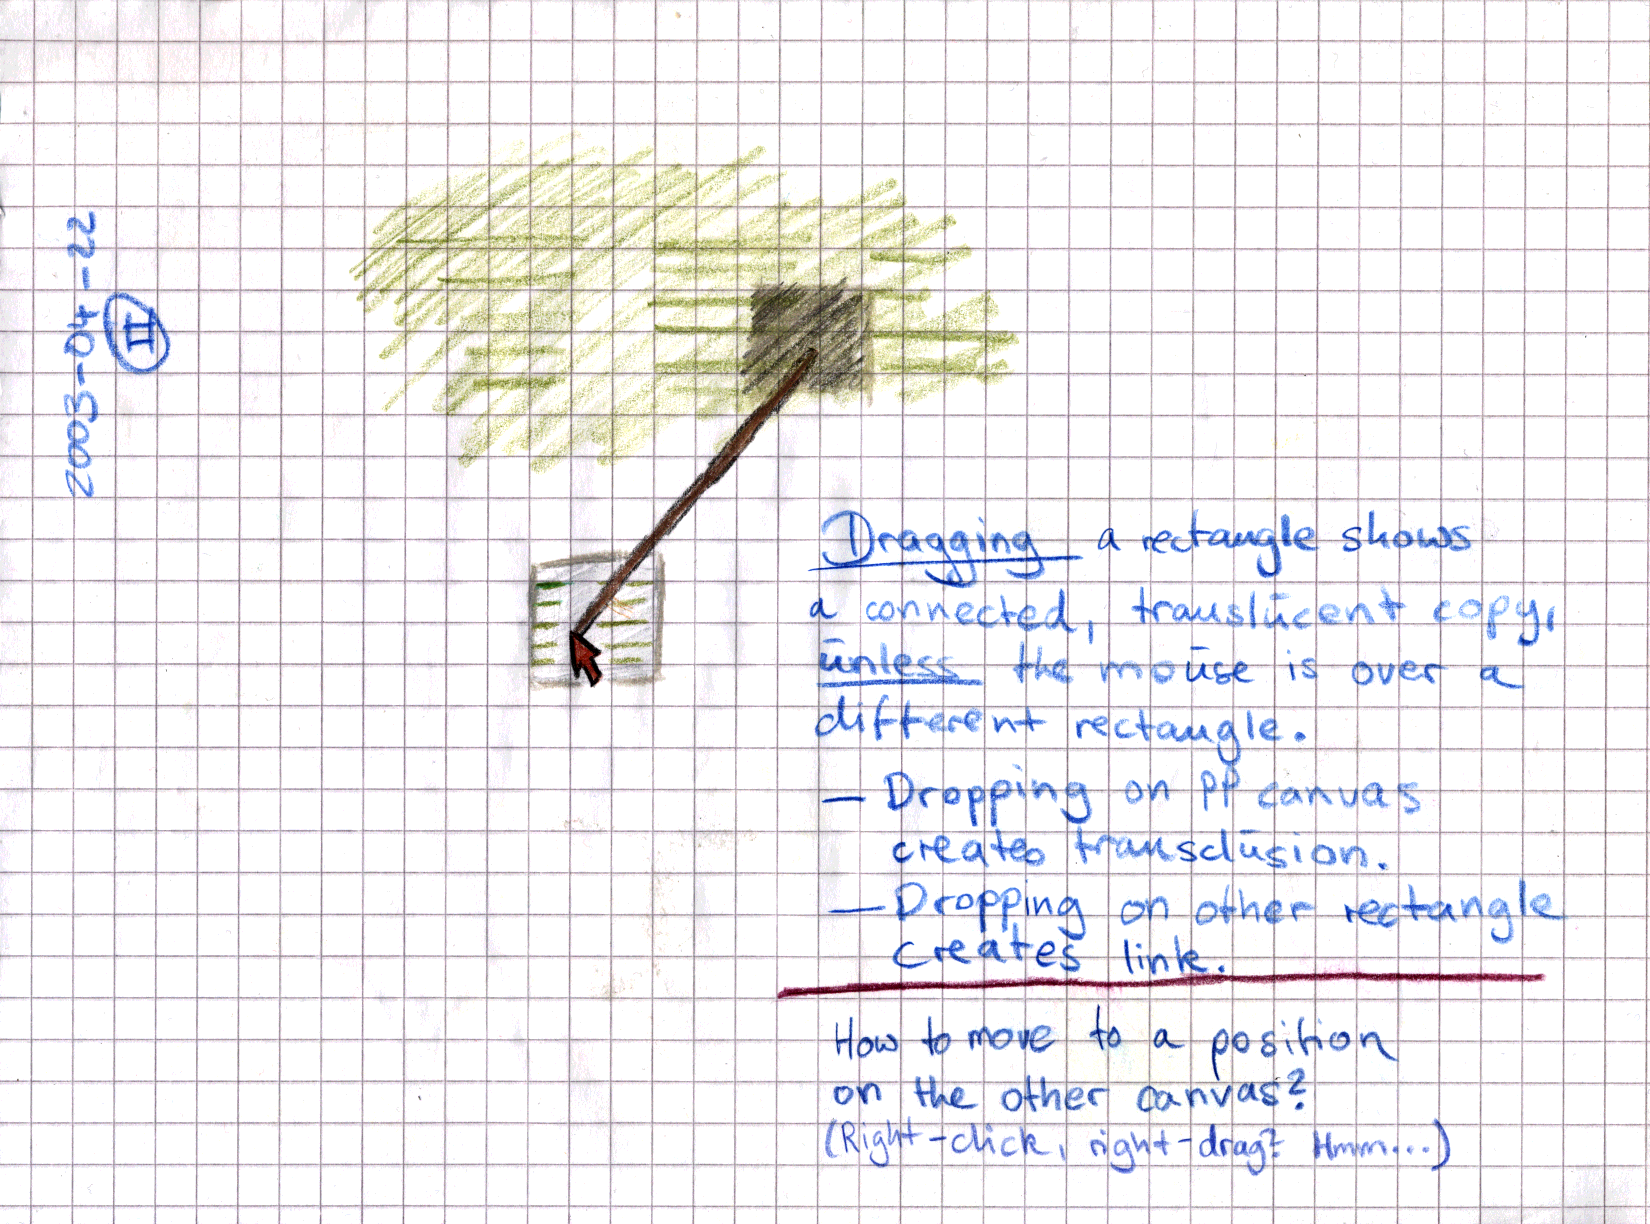 2003-04-22
II
Dragging a rectangle shows
a connected, translucent copy,
unless the mouse is over a
different rectangle.
— Dropping on PP canvas
creates transclusion.
— Dropping on other rectangle
creates link.
How to move to a position
on the other canvas?
(Right-click, right-drag? Hmm...)